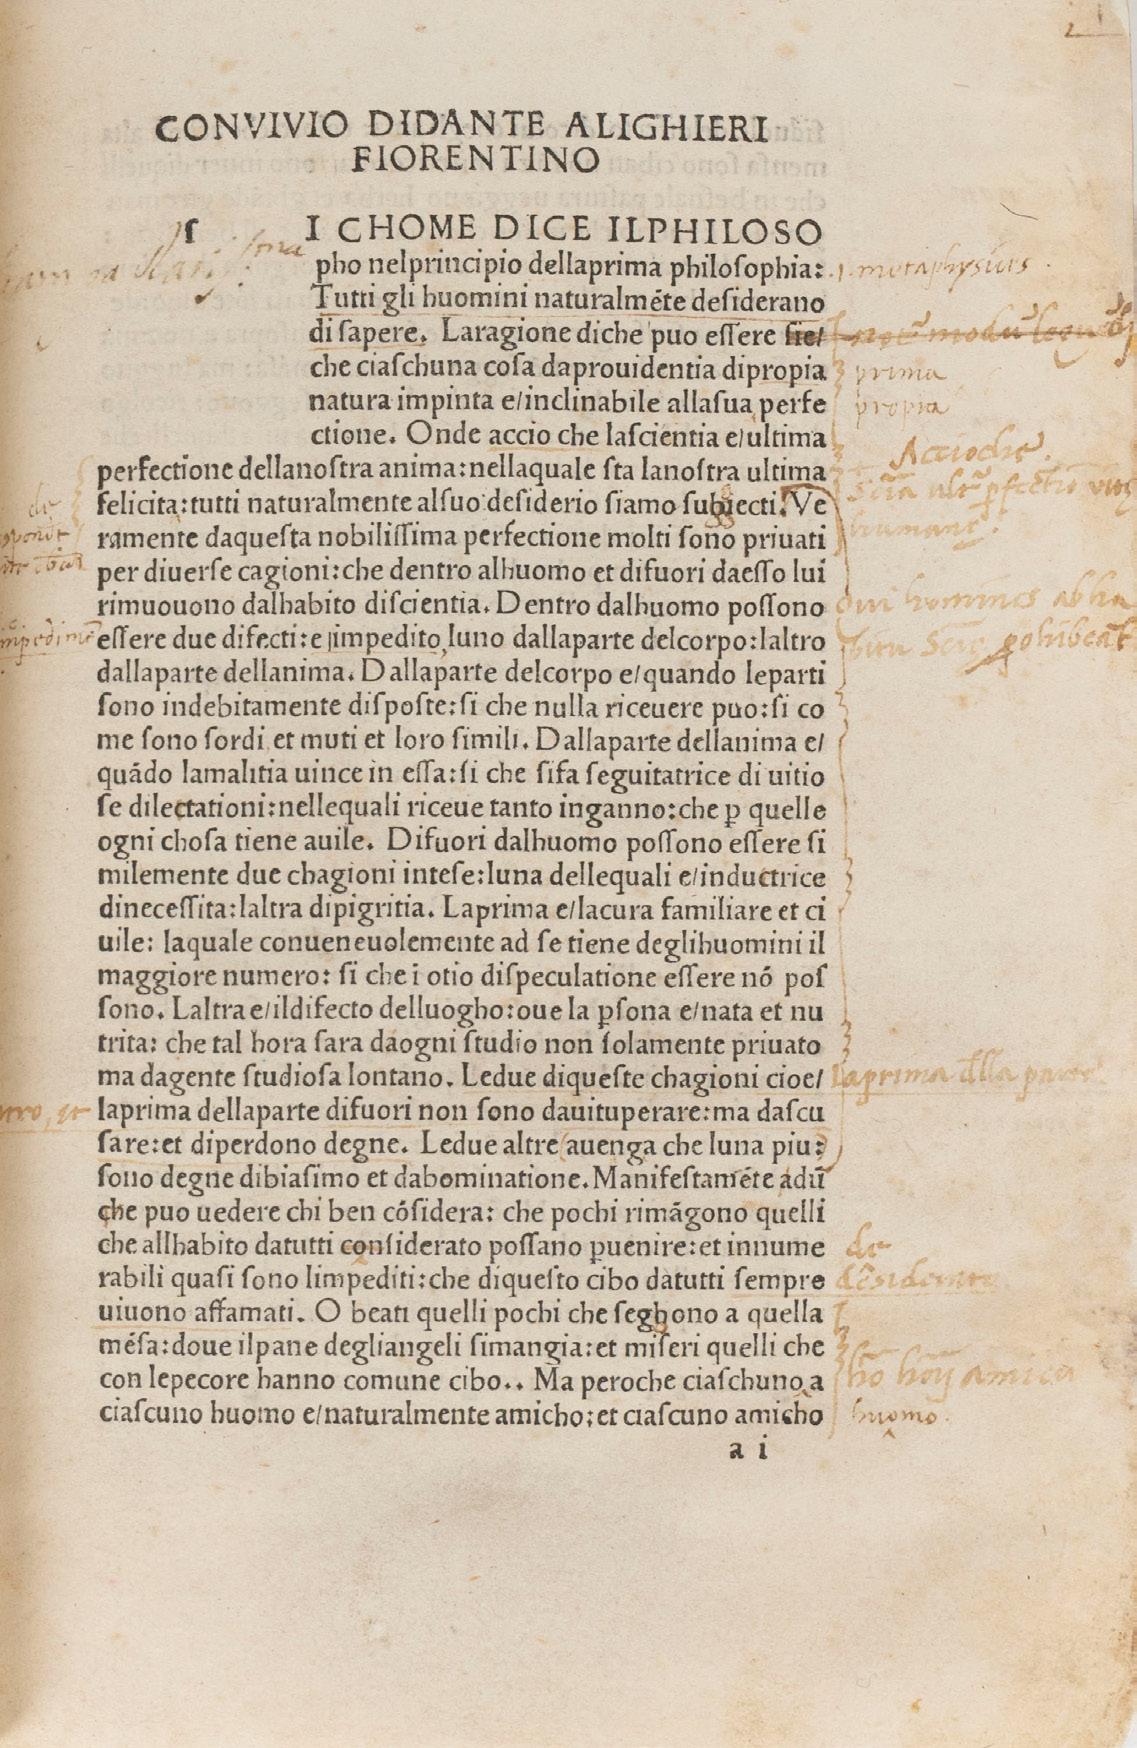 CONVIVIO DIDANTE ALIGHIERI
FIORENTINO
ſ I CHOME DICE ILPHILOSO
pho nelprincipio dellaprima philoſophia:
metaphysicis
Tutti gli huomini naturalmēte deſiderano
di ſapere. Laragione diche puo eſſere ſie/
che ciaſchuna coſa daprouidentia dipropia
prima
natura impinta e/inclinabile allaſua perfe
propia
ctione. Onde accio che laſcientia e/ultima
Acciochè
perfectione dellanoſtra anima:nellaquale ſta lanoſtra ultima
felicita:tutti naturalmente alſuo deſiderio ſiamo ſubiecti. Ve
de
humane
ramente daqueſta nobiliſſima perfectione molti ſono priuati
per diuerſe cagioni:che dentro alhuomo et difuori daeſſo lui
rimuouono dalhabito diſcientia. Dentro dalhuomo poſſono
Qui homines ab ha
eſſere due difecti:e impedito luno dallaparte delcorpo:laltro
bitu Scie prohibeat
dallaparte dellanima. Dallaparte delcorpo e/quando leparti
ſono indebitamente diſpoſte:ſi che nulla riceuere puo:ſi co
me ſono ſordi et muti et loro ſimili. Dallaparte dellanima e/
quādo lamalitia uince in eſſa:ſi che ſifa ſeguitatrice di uitio
ſe dilectationi:nellequali riceue tanto inganno:che ꝑ quelle
ogni choſa tiene auile. Difuori dalhuomo poſſono eſſere ſi
milemente due chagioni inteſe:luna dellequali e/inductrice
dineceſſita:laltra dipigritia. Laprima e/lacura familiare et ci
uile: laquale conueneuolemente ad ſe tiene deglihuomini il
maggiore numero: ſi che i otio diſpeculatione eſſere nō poſ
ſono. Laltra e/ildifecto delluogho:oue la ꝑſona e/nata et nu
trita: che tal hora ſara daogni ſtudio non ſolamente priuato
ma dagente ſtudioſa lontano. Ledue diqueſte chagioni cioe/
Laprima dlla parte
laprima dellaparte difuori non ſono dauituperare:ma daſcu
ſare:et diperdono degne. Ledue altre (auenga che luna piu:)
ſono degne dibiaſimo et dabominatione. Manifeſtamēte adū
che puo uedere chi ben cōſidera: che pochi rimāgono quelli
che allhabito datutti conſiderato poſſano ꝑuenire:et innume
de
rabili quaſi ſono limpediti:che diqueſto cibo datutti ſempre
uiuono affamati. O beati quelli pochi che ſeghono a quella
mēſa:doue ilpane degliangeli ſimangia:et miſeri quelli che
con lepecore hanno comune cibo.. Ma peroche ciaſchuno a
ciaſcuno huomo e/naturalmente amicho:et ciaſcuno amicho
huomo.
a i